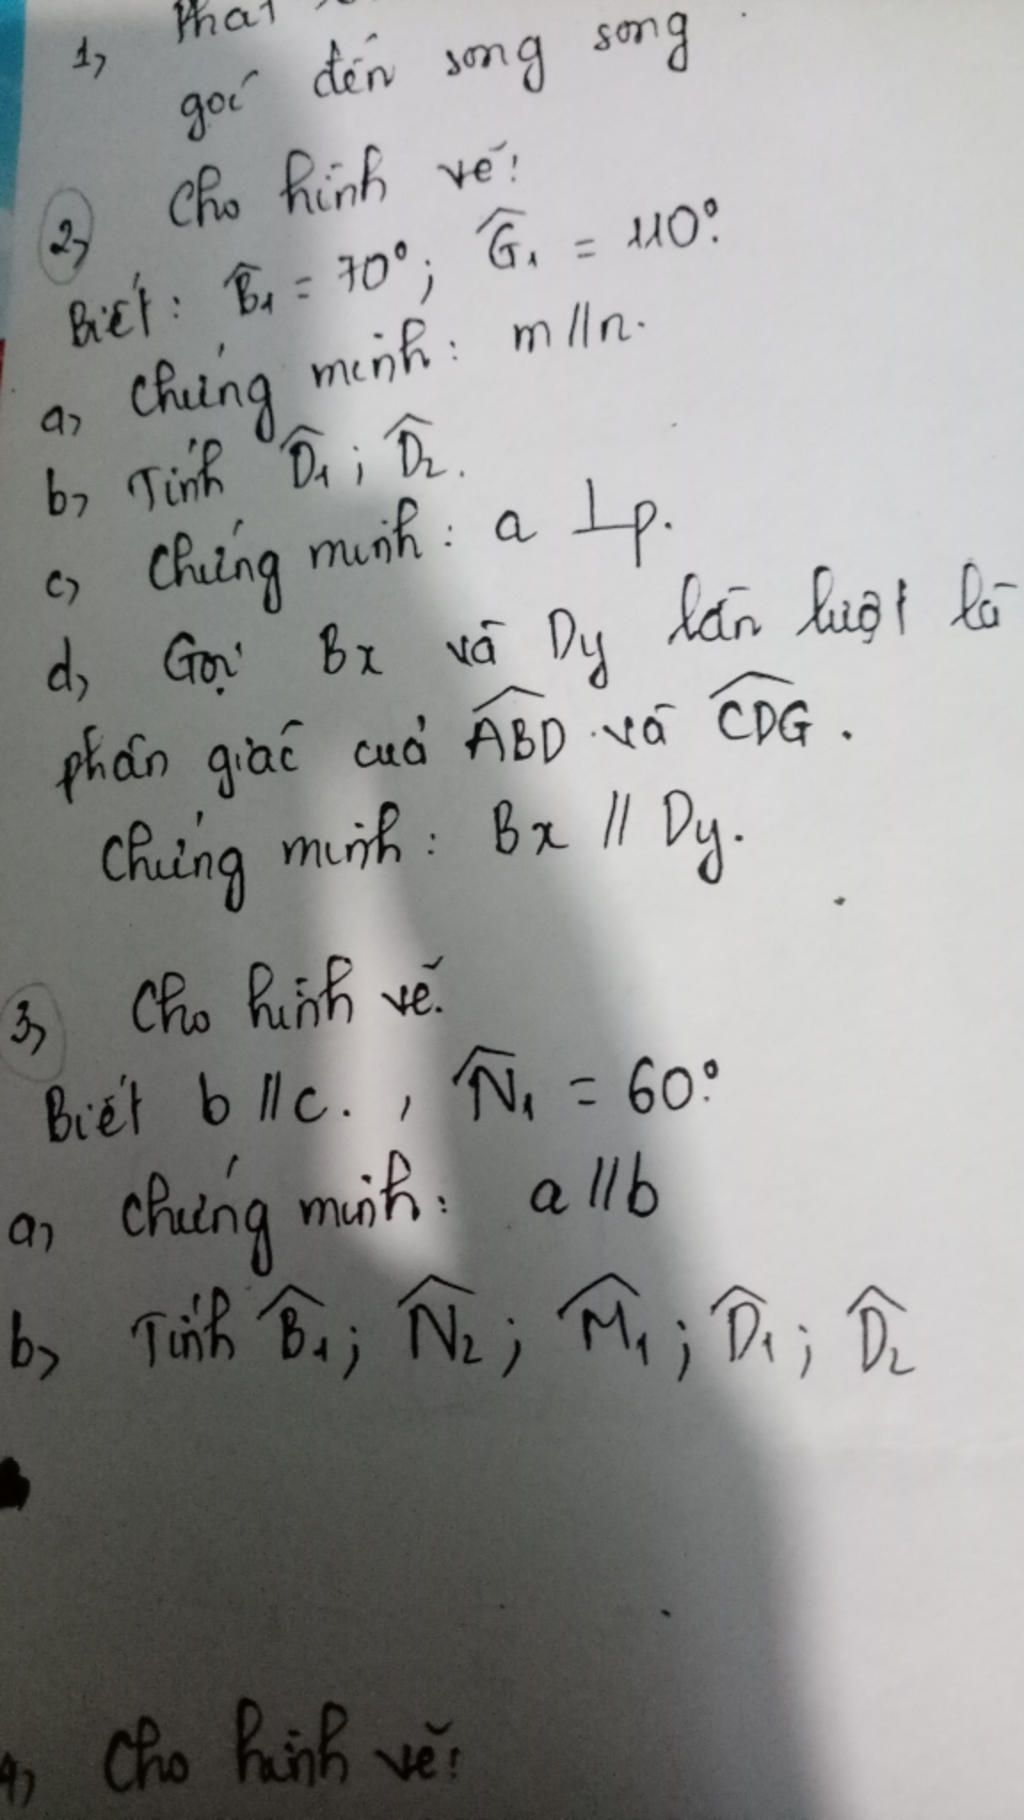 1, Phát
góc đến song song
2, Cho hình vẽ:
Biết: B̂₁ = 70°; Ĝ₁ = 110°.
a, Chứng minh: m // n.
b, Tính D̂₁; D̂₂.
c, Chứng minh: a ⊥ p.
d, Gọi Bx và Dy lần lượt là
phân giác của ABD và CDG.
Chứng minh: Bx // Dy.
3, Cho hình vẽ.
Biết b // c. , N̂₁ = 60°.
a, Chứng minh: a // b
b, Tính B̂₁; N̂₂; M̂₁; D̂₁; D̂₂
4, Cho hình vẽ: